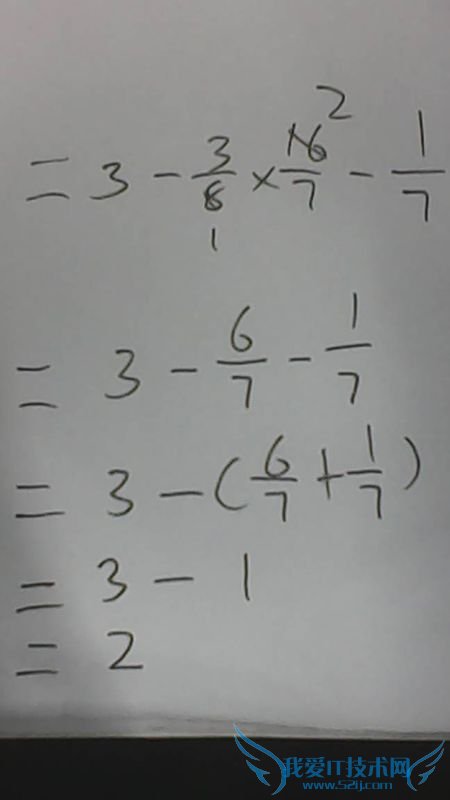 = 3 - 3/8 × 16/7 - 1/7
2
1
= 3 - 6/7 - 1/7
= 3 - (6/7 + 1/7)
= 3 - 1
= 2
我爱IT技术网
www.52ij.com